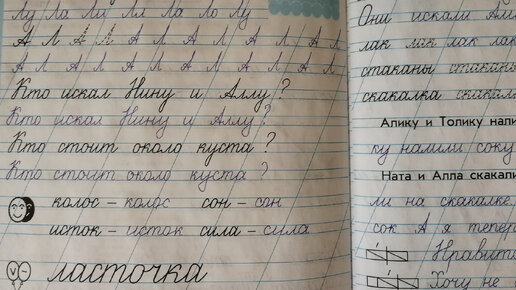 Лу Ла Ли Лл Ла Ло Лу
А Л А А Л А А Л А Л
А Л А Л А Л А Л А Л А Л
Кто искал Нину и Аллу?
Кто искал Нину и Аллу?
Кто стоит около куста?
Кто стоит около куста?
колос – колос сон – сон
исток – исток сила – сила
ласточка
Они искали
лак лак лак лак
стаканы стаканы
скакалка
Алику и Толику
ку налили соку
Ната и Алла скакали
ли на скакалке.
сок А я тепер
Нравит
Хочу не